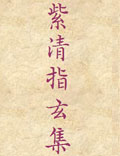 紫清指玄集